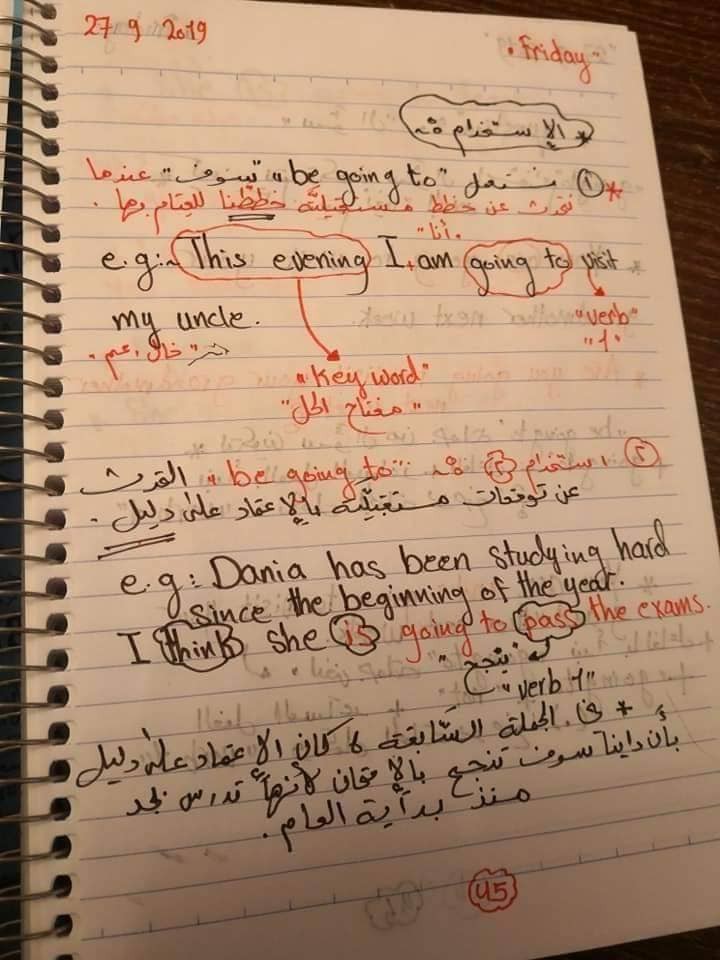 27 9 2019
• Friday
* الإستخدام :-
* ① نستعمل "be going to" "سوف" عندما
نتحدث عن خطط مستقبليَّة خططنا للقيام بها .
"أنا"
e.g:~ This evening I am going to visit
my uncle.
"verb"
"1"
"خال، عم .
"Key word"
"مفتاح الحل"
② استخدام ② :- "be going to" التحدث
عن توقعات مستقبليَّة بالإعتماد على دليل .
e.g: Dania has been studying hard
since the beginning of the year.
I think she is going to pass the exams.
"ينجح"
"verb 1"
* في الجملة السَّابقة كان الاعتماد على دليل
بأن دانيا سوف تنجح بالإمتحان لأنها تدرس بجد
منذ بداية العام .
45